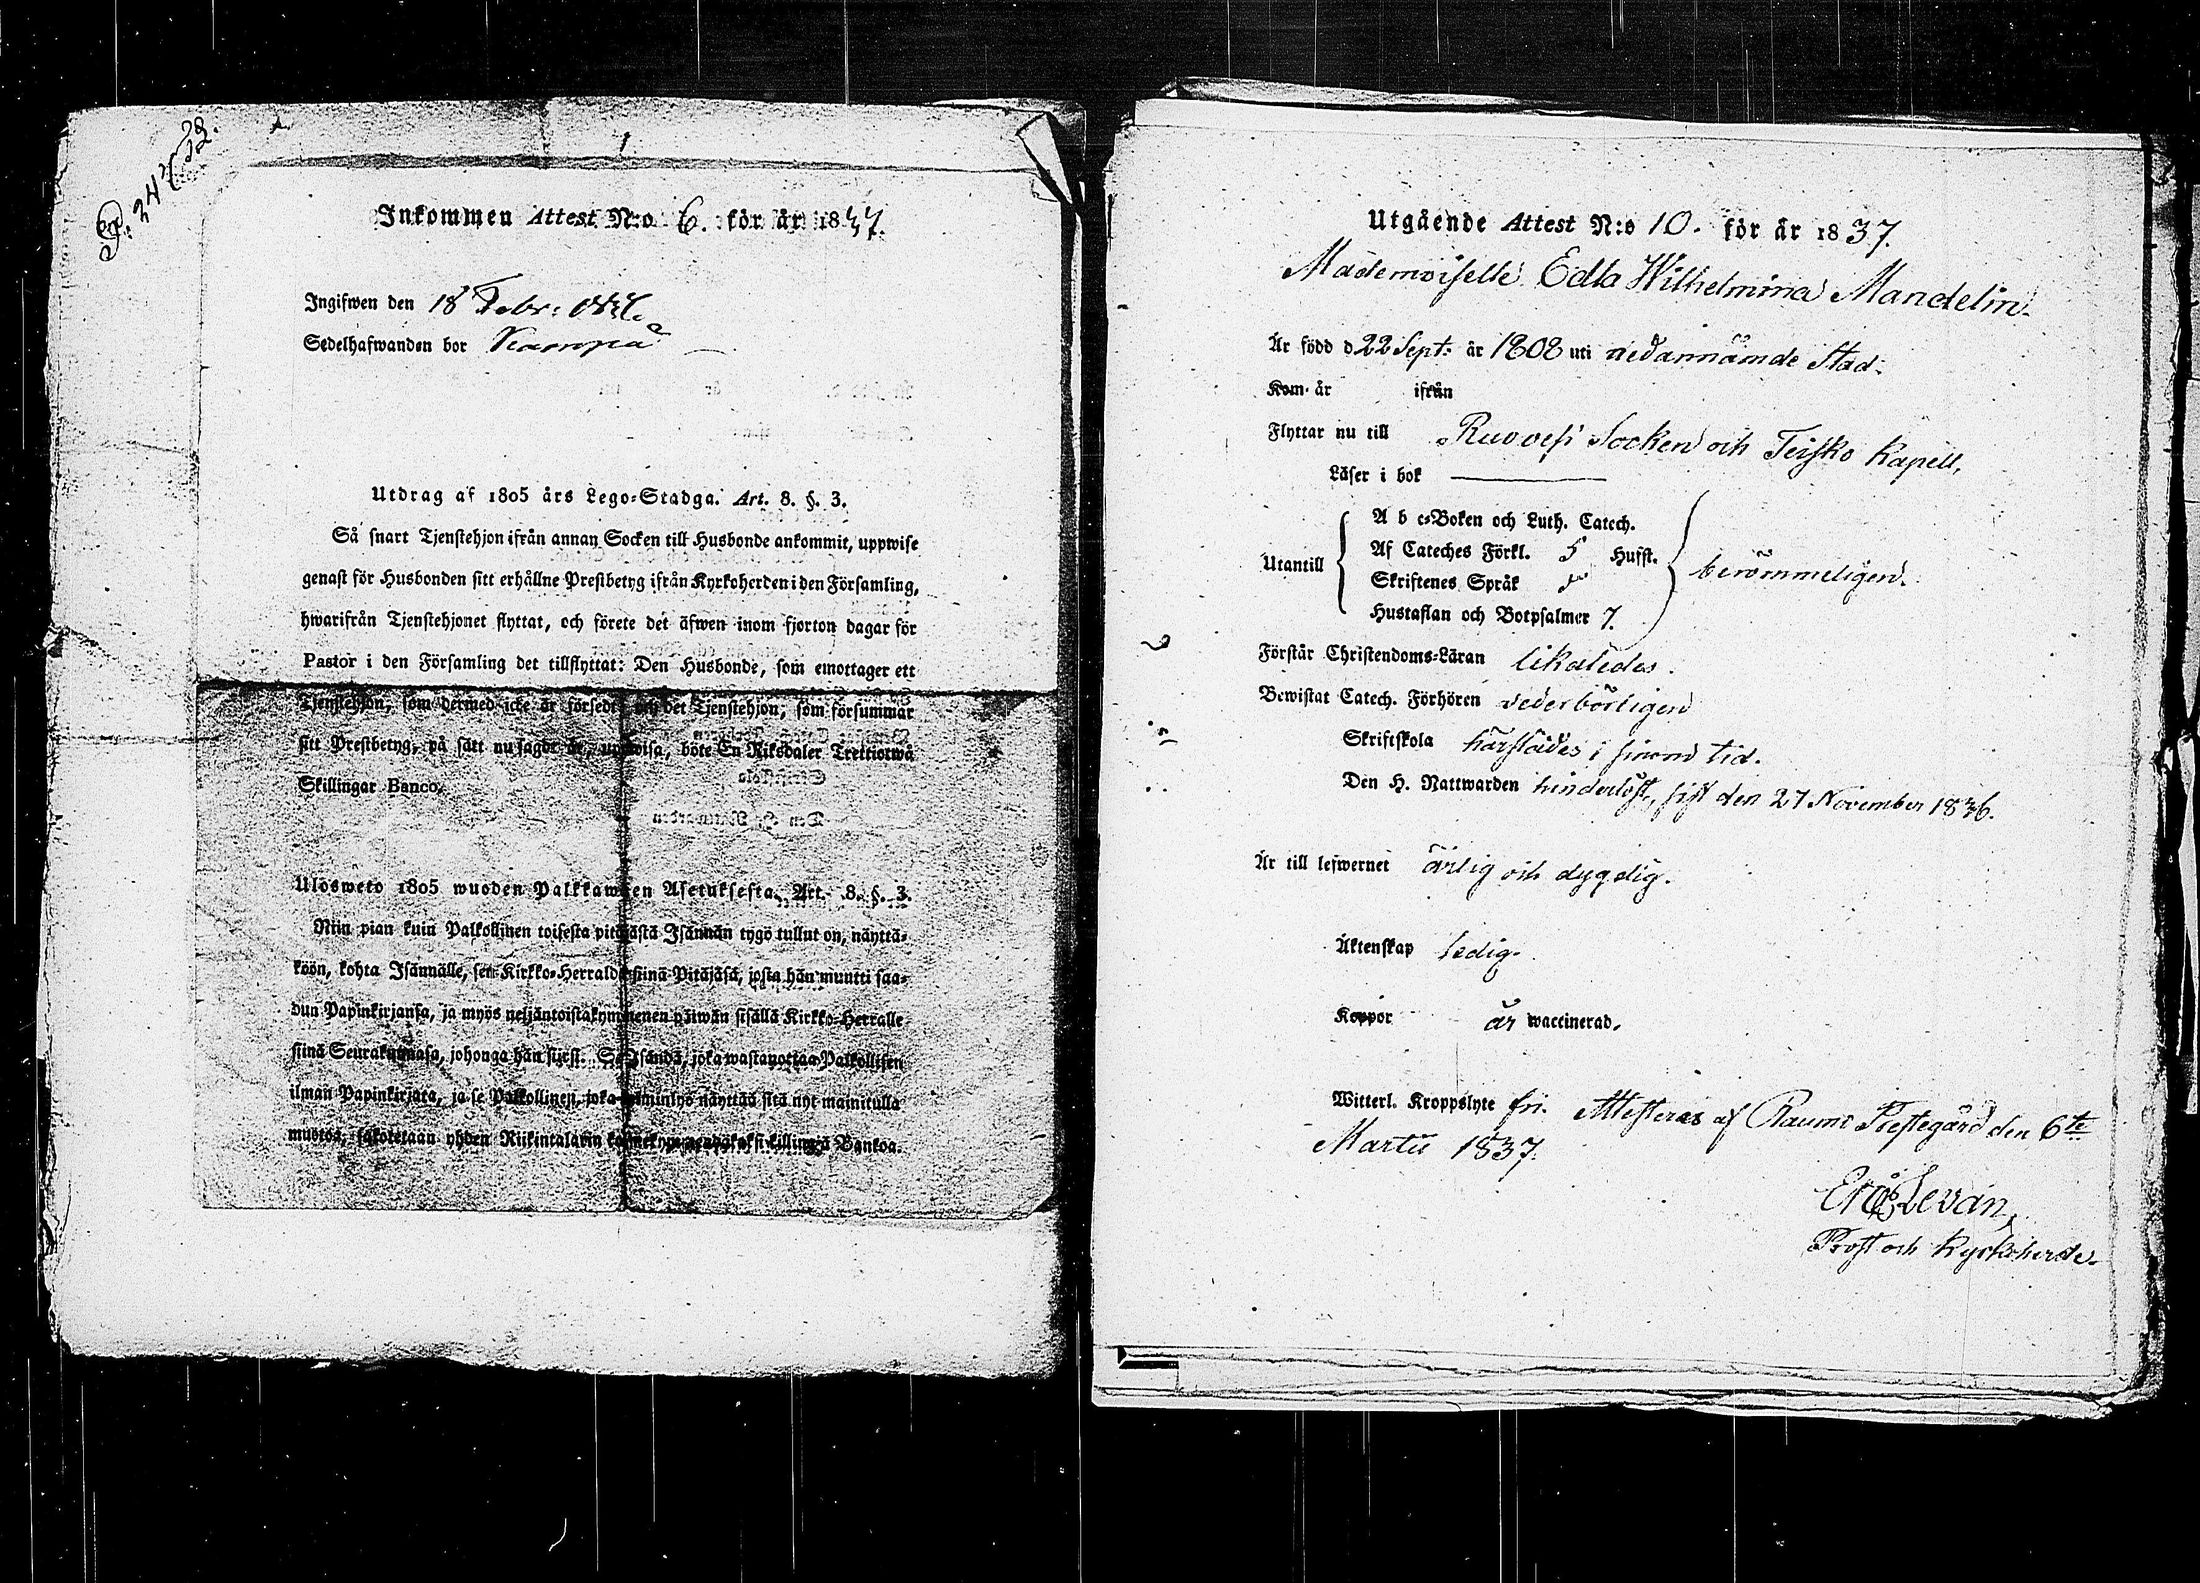 Inkommen Attest N:o 6. för år 1837.
Ingifwen den 18 Febr:
Sedelhafwanden bor
Utdrag af 1805 års Lego-Stadga. Art. 8. §. 3.
Så snart Tjenstehjon ifrån annan Socken till Husbonde ankommit, uppwise
genast för Husbonden sitt erhållne Prestbetyg ifrån Kyrkoherden i den Församling,
hwarifrån Tjenstehjonet flyttat, och förete det äfwen inom fjorton dagar för
Pastor i den Församling det tillflyttat: Den Husbonde, som emottager ett
Tjenstehjon, som dermed icke är försedt och det Tjenstehjon, som försummar
sitt Prestbetyg, på sätt nu sagdt är, uppwisa, böte En Riksdaler Trettiotwå
Skillingar Banco.
Ulosweto 1805 wuoden Palkkawäen Asetuksesta. Art. 8. §. 3.
Niin pian kuin Palkollinen toisesta pitäjästä Isännän tygö tullut on, näyttä-
köön, kohta Isännälle, sen Kirkko-Herralda siinä Pitäjäsä, josta hän muutti saa-
dun Papinkirjansa, ja myös neljäntoistakymmenen päiwän sisällä Kirkko-Herralle
siinä Seurakunnasa, johonga hän siirsi. Se Isändä, joka wastanottaa Palkollisen
ilman Papinkirjata, ja se Palkollinen, joka näyttää sitä nyt mainitulla
muotoa, sakotetaan yhden Riikintalarin killingiä Bankoa.
Utgående Attest N:o 10. för år 1837.
Mademoiselle Edla Wilhelmina Mandelin.
Är född d 22 Sept: år 1808 uti nedannämde Stad.
Kom år ifrån
Flyttar nu till Ruovesi Socken och Teisko Kapell.
Läser i bok
A b c-Boken och Luth. Catech.
Af Cateches Förkl. 5 Hufst.
Utantill berömmeligen.
Skriftenes Språk
Hustaflan och Botpsalmer 7.
Förstår Christendoms-Läran likaledes.
Bewistat Catech. Förhören vederbörligen
Skriftskola härstädes i sinom tid.
Den H. Nattwarden hinderlöst, sist den 27 November 1836.
Är till lefwernet ärlig och dygdig.
Äktenskap ledig.
Koppor är waccinerad.
Witterl. Kroppslyte fri. Attesteras af Raumo Prestegård den 6te
Martii 1837.
Levan,
Prost och Kyrkoherde.